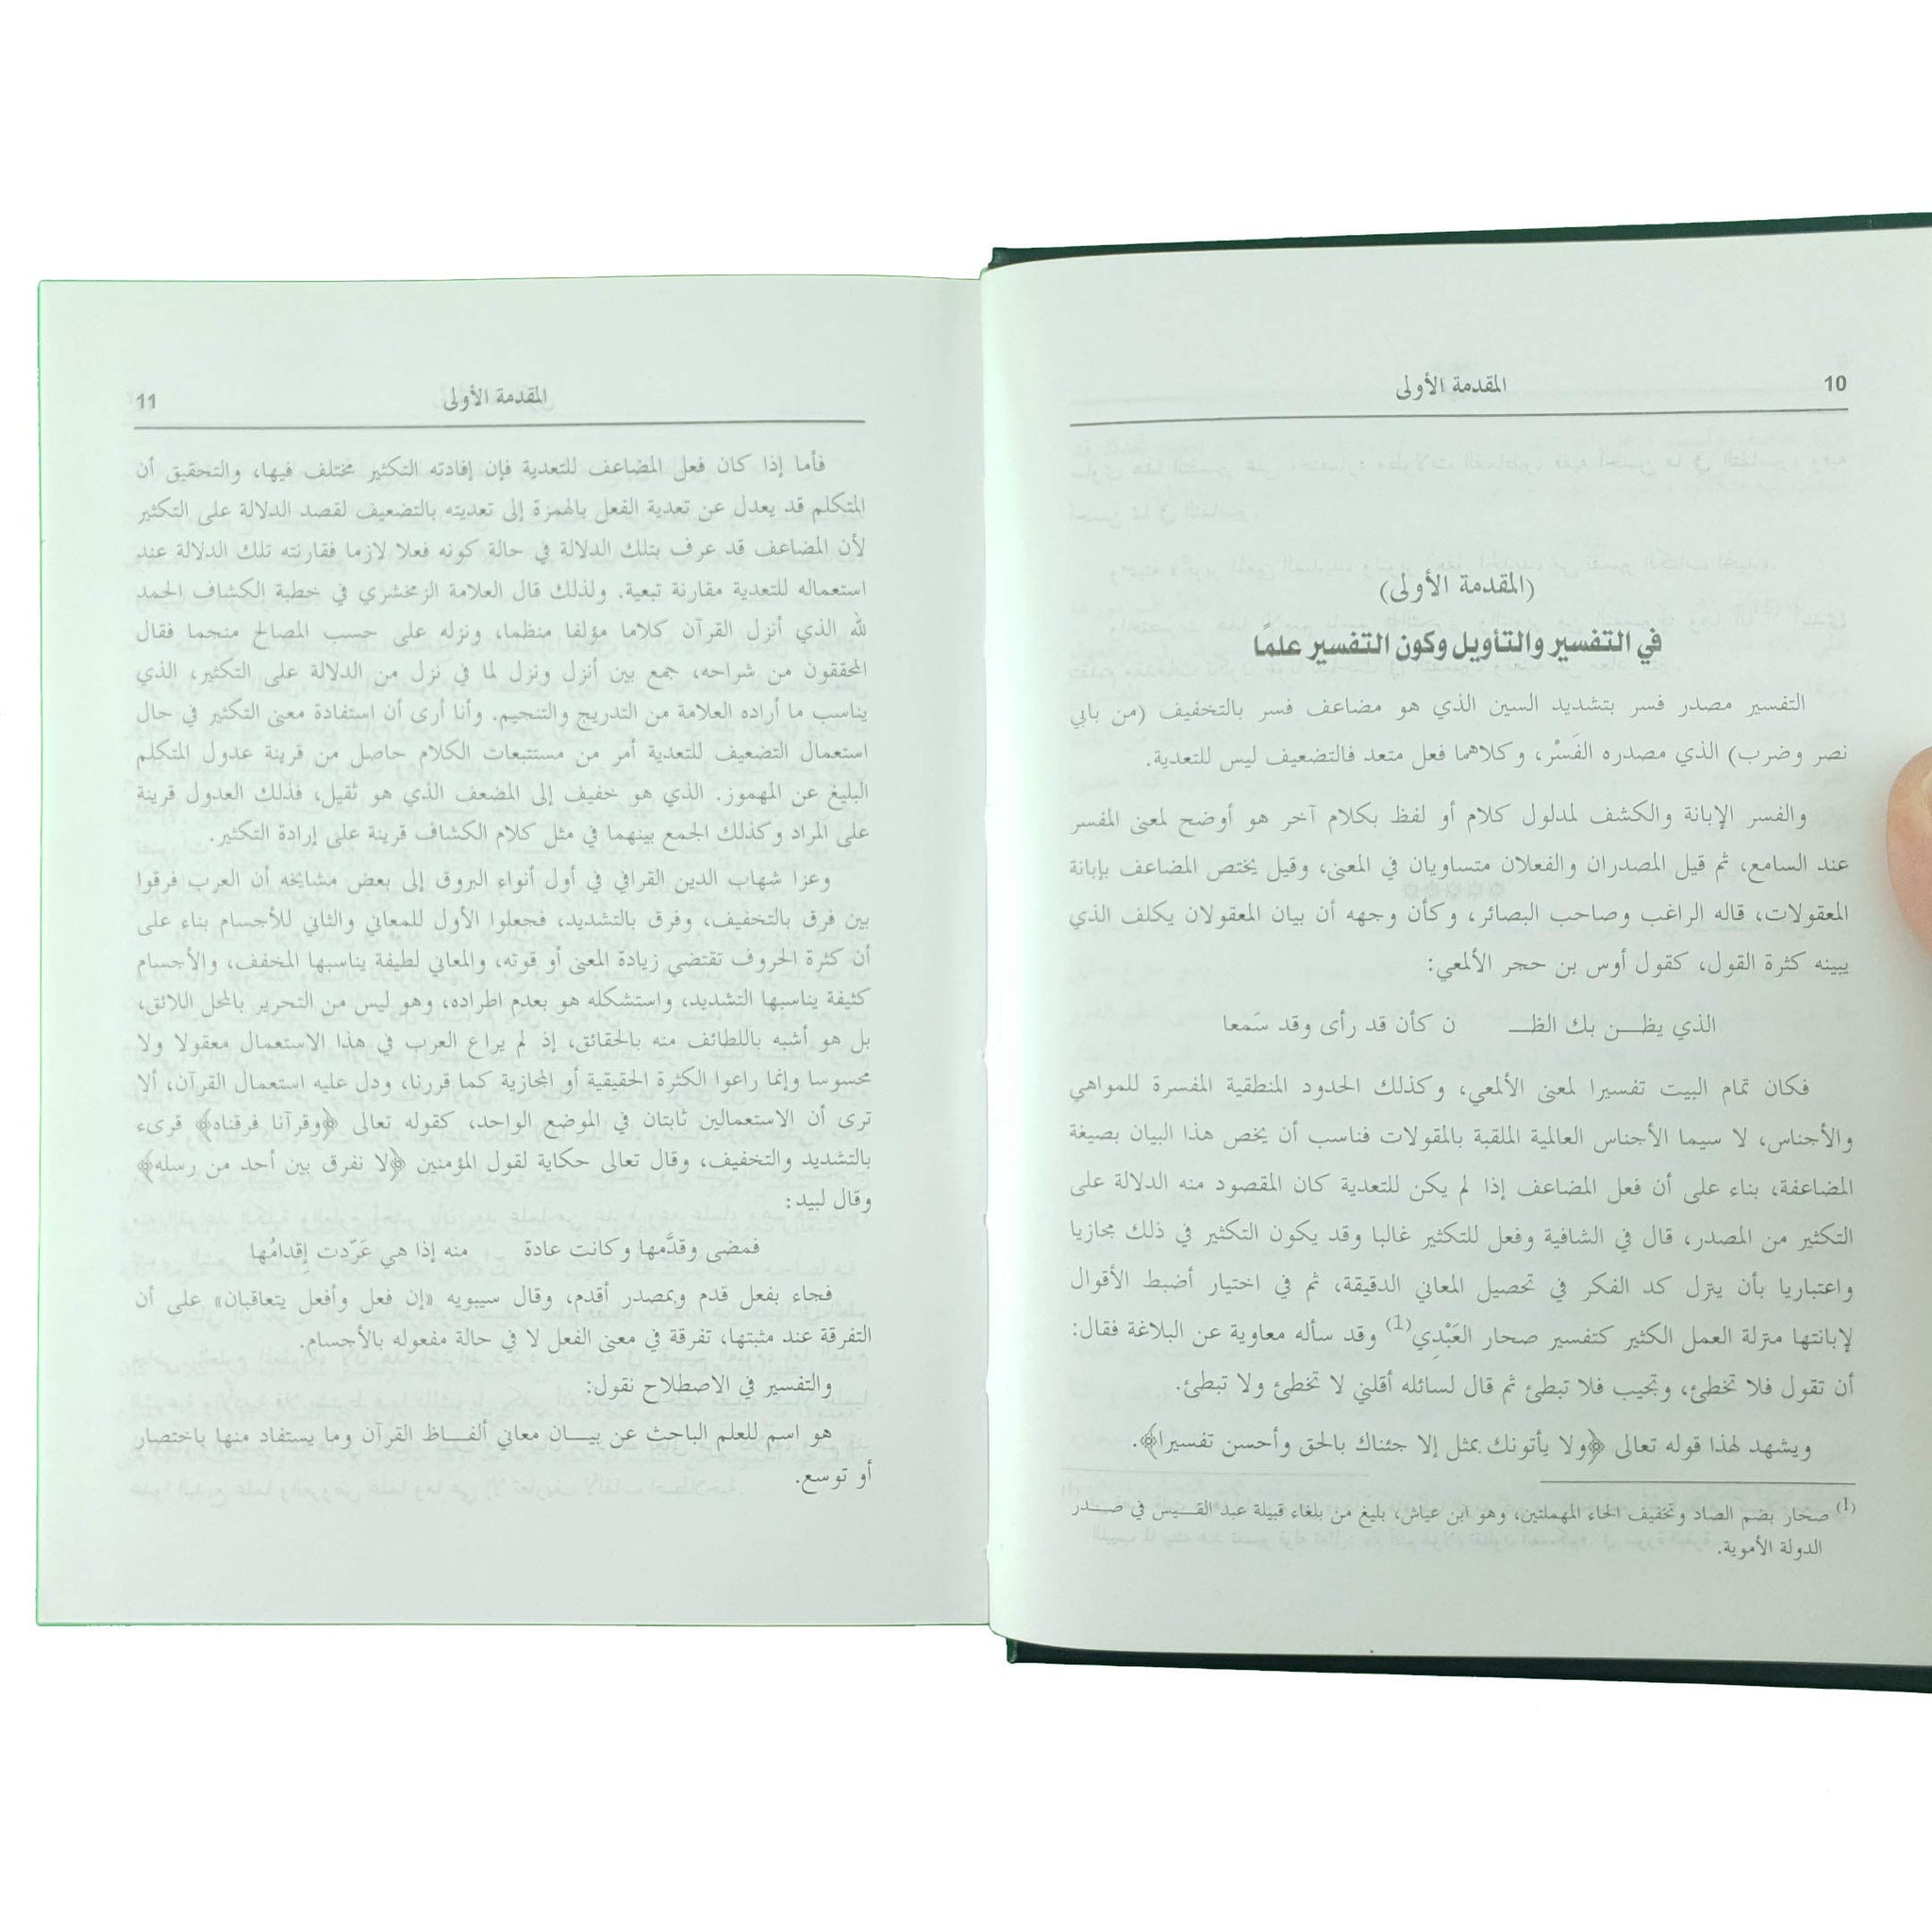 10
المقدمة الأولى
(المقدمة الأولى)
في التفسير والتأويل وكون التفسير علمًا
التفسير مصدر فسر بتشديد السين الذي هو مضاعف فسر بالتخفيف (من بابي
نصر وضرب) الذي مصدره الفَسْر، وكلاهما فعل متعد فالتضعيف ليس للتعدية.
والفسر الإبانة والكشف لمدلول كلام أو لفظ بكلام آخر هو أوضح لمعنى المفسر
عند السامع، ثم قيل المصدران والفعلان متساويان في المعنى، وقيل يختص المضاعف بإبانة
المعقولات، قاله الراغب وصاحب البصائر، وكأن وجهه أن بيان المعقولان يكلف الذي
يبينه كثرة القول، كقول أوس بن حجر الألمعي:
الذي يظــن بك الظــ ن كأن قد رأى وقد سَمعا
فكان تمام البيت تفسيرا لمعنى الألمعي، وكذلك الحدود المنطقية المفسرة للمواهي
والأجناس، لا سيما الأجناس العالمية الملقبة بالمقولات فناسب أن يخص هذا البيان بصيغة
المضاعفة، بناء على أن فعل المضاعف إذا لم يكن للتعدية كان المقصود منه الدلالة على
التكثير من المصدر، قال في الشافية وفعل للتكثير غالبا وقد يكون التكثير في ذلك مجازيا
واعتباريا بأن ينزل كد الفكر في تحصيل المعاني الدقيقة، ثم في اختيار أضبط الأقوال
لإبانتها منزلة العمل الكثير كتفسير صحار العَبْدِي(1) وقد سأله معاوية عن البلاغة فقال:
أن تقول فلا تخطئ، وتجيب فلا تبطئ ثم قال لسائله أقلني لا تخطئ ولا تبطئ.
ويشهد لهذا قوله تعالى ﴿ولا يأتونك بمثل إلا جئناك بالحق وأحسن تفسيرا﴾.
(1) صحار بضم الصاد وتخفيف الحاء المهملتين، وهو ابن عياش، بليغ من بلغاء قبيلة عبد القــيس في صــدر
الدولة الأموية.
المقدمة الأولى
11
فأما إذا كان فعل المضاعف للتعدية فإن إفادته التكثير مختلف فيها، والتحقيق أن
المتكلم قد يعدل عن تعدية الفعل بالهمزة إلى تعديته بالتضعيف لقصد الدلالة على التكثير
لأن المضاعف قد عرف بتلك الدلالة في حالة كونه فعلا لازما فقارنته تلك الدلالة عند
استعماله للتعدية مقارنة تبعية. ولذلك قال العلامة الزمخشري في خطبة الكشاف الحمد
لله الذي أنزل القرآن كلاما مؤلفا منظما، ونزله على حسب المصالح منجما فقال
المحققون من شراحه، جمع بين أنزل ونزل لما في نزل من الدلالة على التكثير، الذي
يناسب ما أراده العلامة من التدريج والتنجيم. وأنا أرى أن استفادة معنى التكثير في حال
استعمال التضعيف للتعدية أمر من مستتبعات الكلام حاصل من قرينة عدول المتكلم
البليغ عن المهموز. الذي هو خفيف إلى المضعف الذي هو ثقيل، فذلك العدول قرينة
على المراد وكذلك الجمع بينهما في مثل كلام الكشاف قرينة على إرادة التكثير.
وعزا شهاب الدين القرافي في أول أنواء البروق إلى بعض مشايخه أن العرب فرقوا
بين فرق بالتخفيف، وفرق بالتشديد، فجعلوا الأول للمعاني والثاني للأجسام بناء على
أن كثرة الحروف تقتضي زيادة المعنى أو قوته، والمعاني لطيفة يناسبها المخفف، والأجسام
كثيفة يناسبها التشديد، واستشكله هو بعدم اطراده، وهو ليس من التحرير بالمحل اللائق،
بل هو أشبه باللطائف منه بالحقائق، إذ لم يراع العرب في هذا الاستعمال معقولا ولا
محسوسا وإنما راعوا الكثرة الحقيقية أو المجازية كما قررنا، ودل عليه استعمال القرآن، ألا
ترى أن الاستعمالين ثابتان في الموضع الواحد، كقوله تعالى ﴿وقرآنا فرقناه﴾ قرىء
بالتشديد والتخفيف، وقال تعالى حكاية لقول المؤمنين ﴿لا نفرق بين أحد من رسله﴾
وقال لبيد:
فمضى وقدَّمها وكانت عادة منه إذا هي عَرّدت إِقدامُها
فجاء بفعل قدم وبمصدر أقدم، وقال سيبويه «إن فعل وأفعل يتعاقبان» على أن
التفرقة عند مثبتها، تفرقة في معنى الفعل لا في حالة مفعوله بالأجسام.
والتفسير في الاصطلاح نقول:
هو اسم للعلم الباحث عن بيــان معاني ألفــاظ القرآن وما يستفاد منها باختصار
أو توسع.